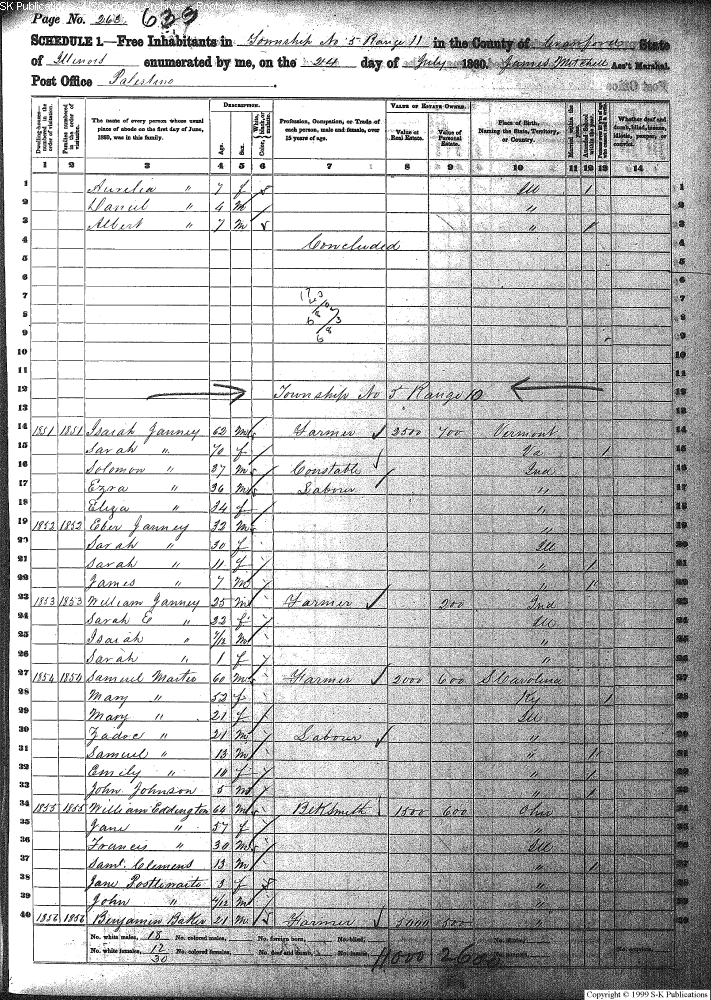 Page No. 263 633
SCHEDULE 1.—Free Inhabitants in Township No 5 Range 11 in the County of Crawford State
of Illinois enumerated by me, on the 24 day of July 1860. James Mitchell Ass't Marshal.
Post Office Palestine
Dwelling-houses—numbered in the order of visitation.
Families numbered in the order of visitation.
The name of every person whose usual place of abode on the first day of June, 1860, was in this family.
DESCRIPTION.
Age. Sex. Color, White, black, or mulatto.
Profession, Occupation, or Trade of each person, male and female, over 15 years of age.
VALUE OF ESTATE OWNED.
Value of Real Estate. Value of Personal Estate.
Place of Birth, Naming the State, Territory, or Country.
Married within the year. Attended School within the year.
Whether deaf and dumb, blind, insane, idiotic, pauper, or convict.
1 2 3 4 5 6 7 8 9 10 11 12 13 14
1 Aurelia " 7 f Ill / 1
2 Daniel " 4 m " 2
3 Albert " 7 m " / 3
4 Concluded 4
5 5
6 6
7 7
8 8
9 9
10 10
11 11
12 Township No 5 Range 10 12
13 13
14 1851 1851 Isaiah Janney 62 m Farmer 2500 700 Vermont 14
15 Sarah " 70 f Va / 15
16 Solomon " 27 m Constable Ind 16
17 Ezra " 36 m Labour " 17
18 Eliza " 24 f " 18
19 1852 1852 Eber Janney 32 m " 19
20 Sarah " 30 f Ill 20
21 Sarah " 11 f " / 21
22 James " 7 m " / 22
23 1853 1853 William Janney 25 m Farmer 200 Ind 23
24 Sarah E " 22 f Ill 24
25 Isaiah " m " 25
26 Sarah " 1 f " 26
27 1854 1854 Samuel 60 m Farmer 2000 600 S Carolina 27
28 Mary " 52 f Ky / 28
29 Mary " 21 f Ill 29
30 Zadoc " 21 m Labour " 30
31 Samuel " 13 m " / 31
32 Emily " 10 f " / 32
33 John Johnson 5 m " / 33
34 1855 1855 William Eddington 64 m Blksmith 1500 600 Ohio 34
35 Jane " 57 f " 35
36 Francis " 30 m Ill 36
37 Saml. Clemens 13 m " / 37
38 Jane Postlewaite 3 f " 38
39 John " m " 39
40 1856 1856 Benjamin Baker 21 m Farmer 5000 500 " 40
No. white males, 18 No. colored males, No. foreign born, No. blind,
No. white females, 12 No. colored females, No. deaf and dumb, No. insane, 11000 2600
30
Copyright © 1999 S-K Publications